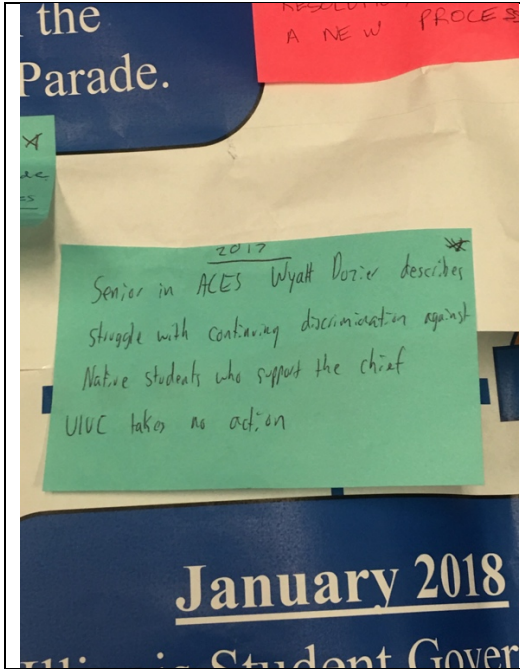 the
Parade.
A NEW PROCESS
2017
Senior in ACES Wyatt Dozier describes
struggle with continuing discrimination against
Native students who support the chief
UIUC takes no action
January 2018
Student Gover